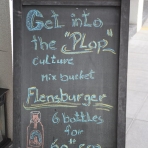 Get into
the "Plop"
culture
mix bucket
Flensburger
6 bottles
for